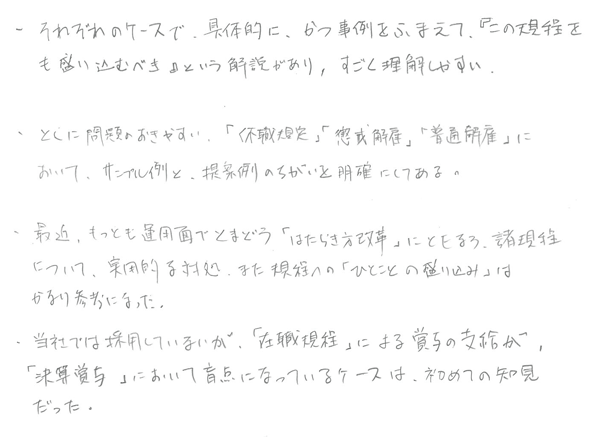 - それぞれのケースで、具体的に、かつ事例をふまえて、『この規程を
も盛り込むべき』という解説があり, すごく理解しやすい.
・とくに問題のおきやすい、「休職規定」「懲戒解雇」「普通解雇」に
おいて、サンプル例と、提案例のちがいを明確にしてある。
・最近、もっとも運用面でとまどう「はたらき方改革」にともなう、諸規程
について、実用的な対処、また規程への「ひとことの盛り込み」は
かなり参考になった.
・当社では採用していないが、「在職規程」による賞与の支給が,
「決算賞与」において盲点になっているケースは、初めての知見
だった.